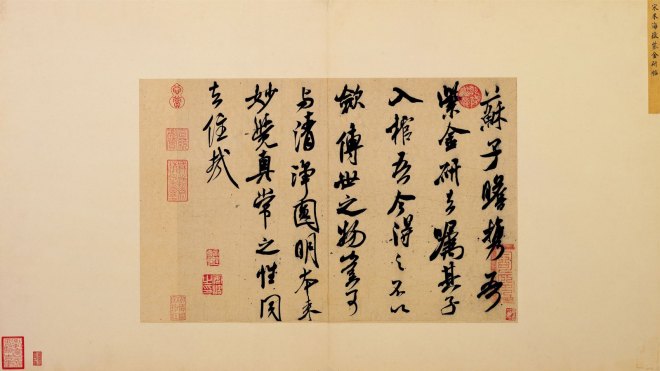 宋米海嶽紫金研帖
蘇子瞻携吾
紫金研去囑其子
入棺吾今得之不以
斂傳世之物豈可
与清淨圓明本来
妙覺真常之性同
去住哉